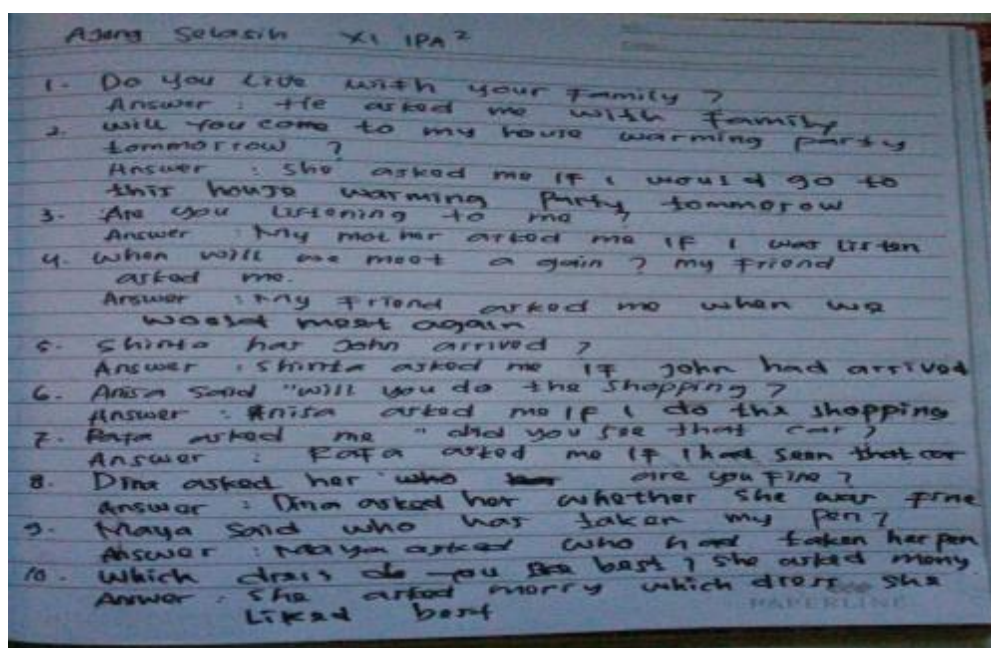 Ajeng Selasih XI IPA 2
1. Do you live with your family ?
Answer : He asked me with family
2. will you come to my house warming party
tommorrow ?
Answer : she asked me if i would go to
this house warming party tommorow
3. Are you listening to me ?
Answer : My mother asked me if I was listen
4. when will we meet a gain ? my friend
asked me.
Answer : my friend asked me when we
would meet again
5. Shinta has John arrived ?
Answer : Shinta asked me if john had arrived
6. Anisa said "will you do the shopping ?
Answer : Anisa asked me if i do the shopping
7. Rafa asked me "did you see that car ?
Answer : Rafa asked me if i had seen that car
8. Dina asked her "who are you fine ?
Answer : Dina asked her whether she was fine
9. Maya said who has taken my pen ?
Answer : Maya asked who had taken her pen
10. Which dress do you like best ? she asked
Answer : she asked which dress she
Liked best
PAPERLINE